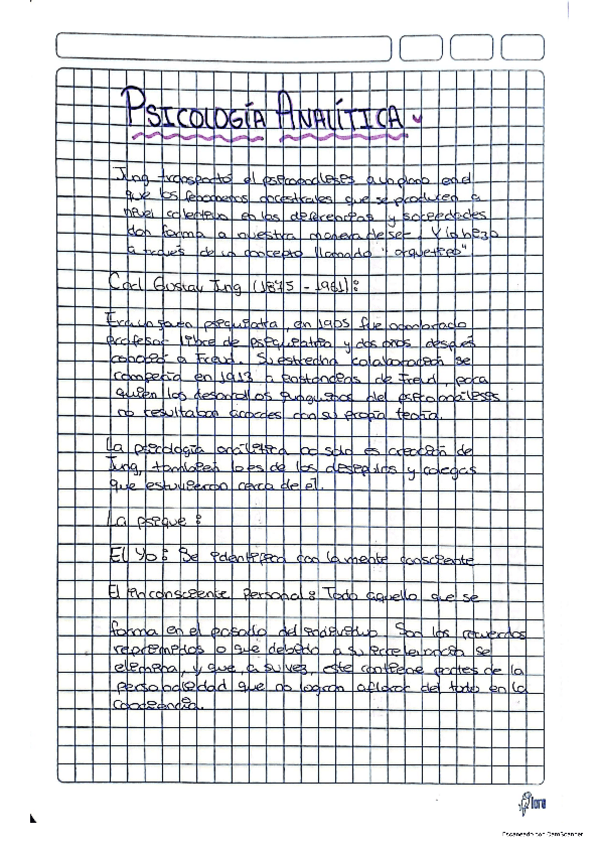 PSICOLOGÍA ANALÍTICA
Jung transportó el psicoanálisis a un plano en el
que los fenómenos ancestrales que se producen a
nivel colectivo en las diferencias y sociedades
dan forma a nuestra manera de ser. Y la hizo
a través de un concepto llamado "arquetipo"
Carl Gustav Jung (1875 - 1961):
psiquiatra, en 1905 fue nombrado
profesor libre de psiquiatría y dos años después
conoció a Freud. Su estrecha colaboración se
rompería en 1913 a instancias de Freud, para
quien los desarrollos junguianos del psicoanálisis
no resultaban acordes con su propia teoría.
La psicología analítica no solo es creación de
Jung, también lo es de los discípulos y colegas
que estuvieron cerca de él.
La psique:
El Yo: Se identifica con la mente consciente
El Inconsciente Personal: Todo aquello que se
forma en el pasado del individuo. Son los recuerdos
reprimidos o que debido a su se
elimina, y que, a su vez, este contiene partes de la
personalidad que no logran aflorar del todo en la
conciencia.
Flora
Escaneado con CamScanner